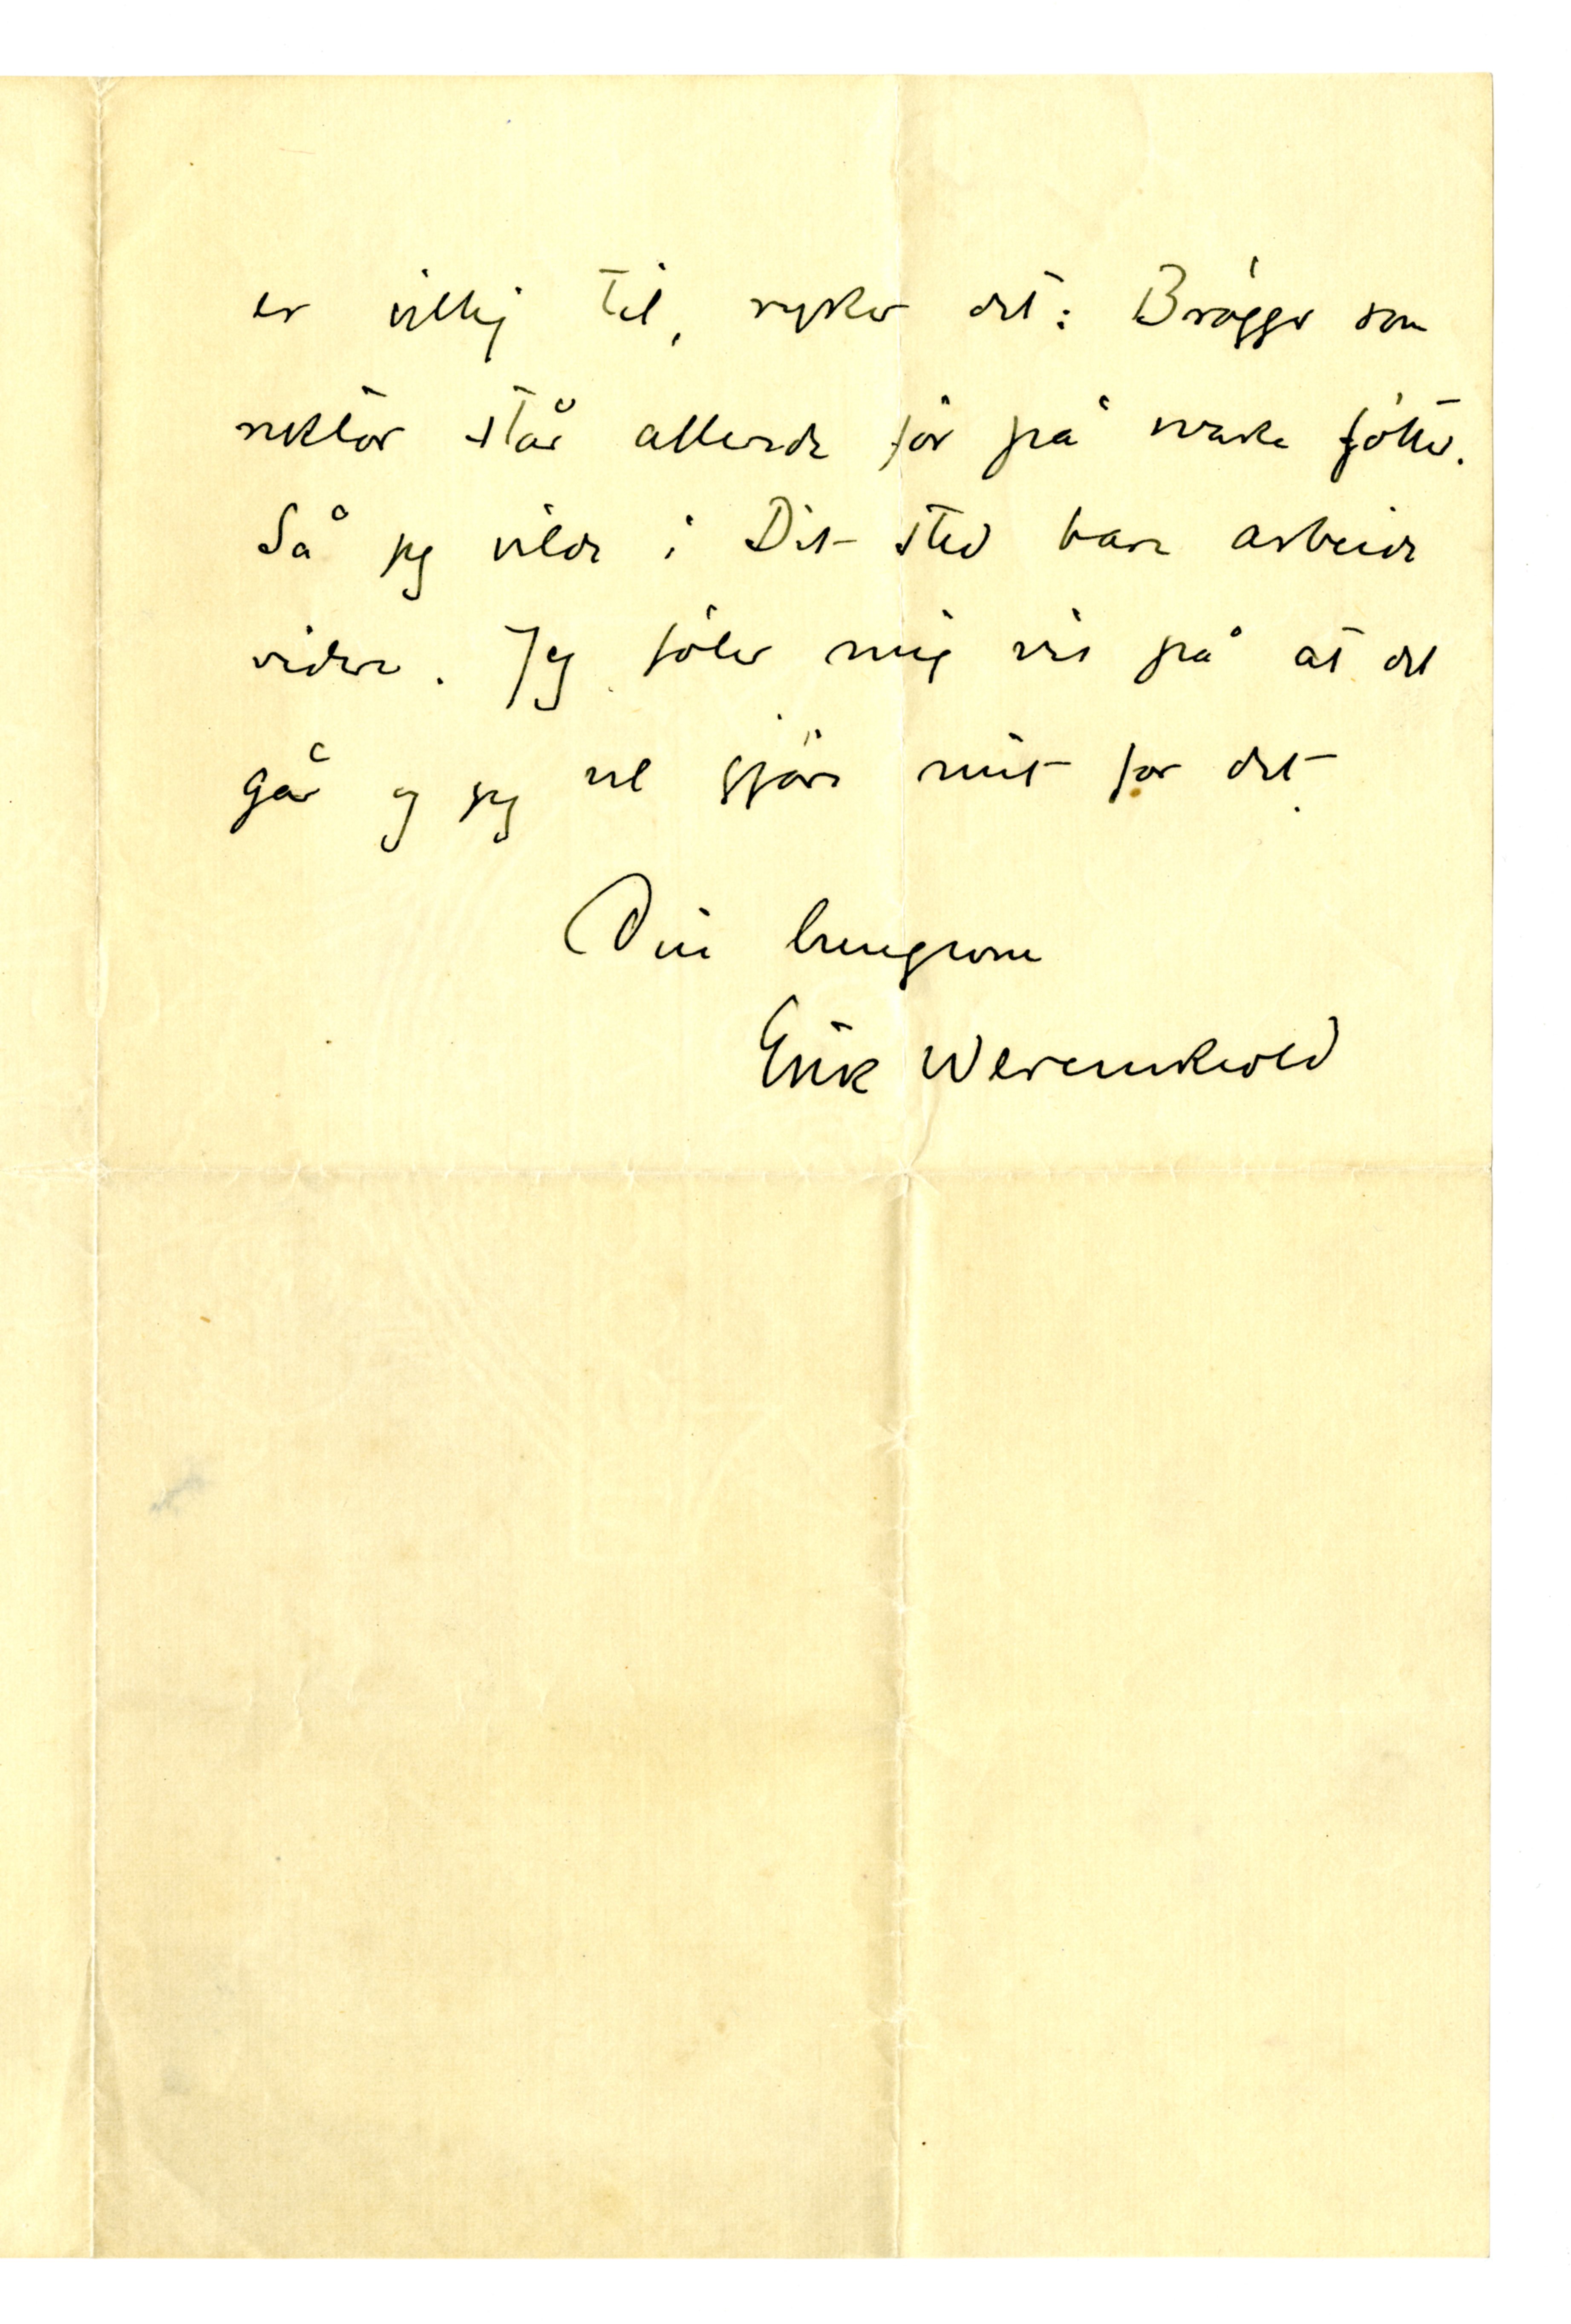 er villig til, ryker det: Brögger som
rektor står allerede før på svake føtter.
Så jeg vilde i Dit sted bare arbeide
videre. Jeg føler mig vis på at det
går og jeg vil gjøre mit for det.
Din hengivne
Erik Werenskiold